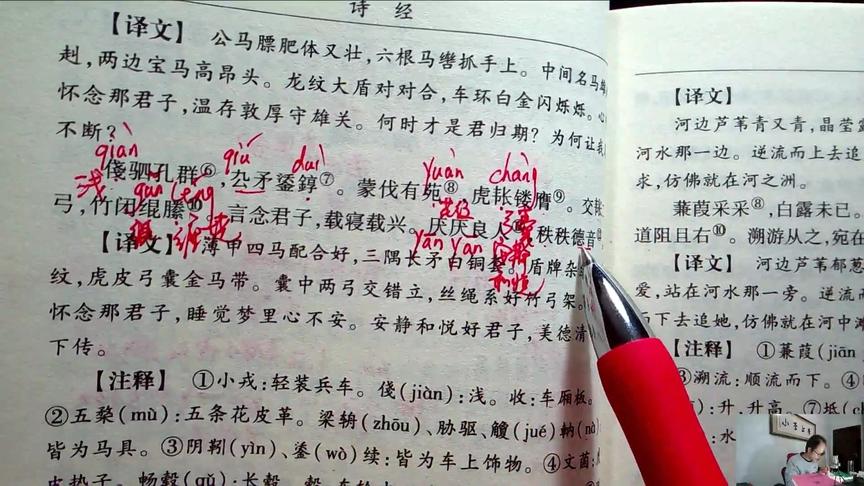 诗 经
【译文】 公马膘肥体又壮，六根马辔抓手上。中间名马
赳，两边宝马高昂头。龙纹大盾对对合，车环白金闪烁烁。心
怀念那君子，温存敦厚守雄关。何时才是君归期？为何让我
不断？
qián qiú duì yuàn chàng
浅
俴驷孔群⑥，厹矛鋈錞⑦。蒙伐有苑⑧，虎韔镂膺⑨。交韔
gǔn téng
弓，竹闭绲縢⑩。言念君子，载寝载兴。厌厌良人，秩秩德音
yān yān
【译文】 薄甲四马配合好，三隅长矛白铜套。盾牌杂
纹，虎皮弓囊金马带。囊中两弓交错立，丝绳系好竹弓架。
怀念那君子，睡觉梦里心不安。安静和悦好君子，美德清
下传。
【注释】 ①小戎：轻装兵车。俴(jiàn)：浅。收：车厢板。
②五楘(mù)：五条花皮革。梁辀(zhōu)、胁驱、觼(jué)軜(nà)
皆为马具。③阴靷(yìn)、鋈(wò)续：皆为车上饰物。④文茵：
皮垫子。畅毂(gǔ)：长毂。
【译文】
河边芦苇青又青，晶莹
河水那一边。逆流而上去追
求，仿佛就在河之洲。
蒹葭采采⑧，白露未已。
道阻且右⑩。溯游从之，宛在
【译文】 河边芦苇郁葱
爱，站在河水那一旁。逆流而
而下去追她，仿佛就在河中
【注释】 ①蒹葭(jiān
③溯流：顺流而下。④
：升，升高。⑦坻(ch
：水